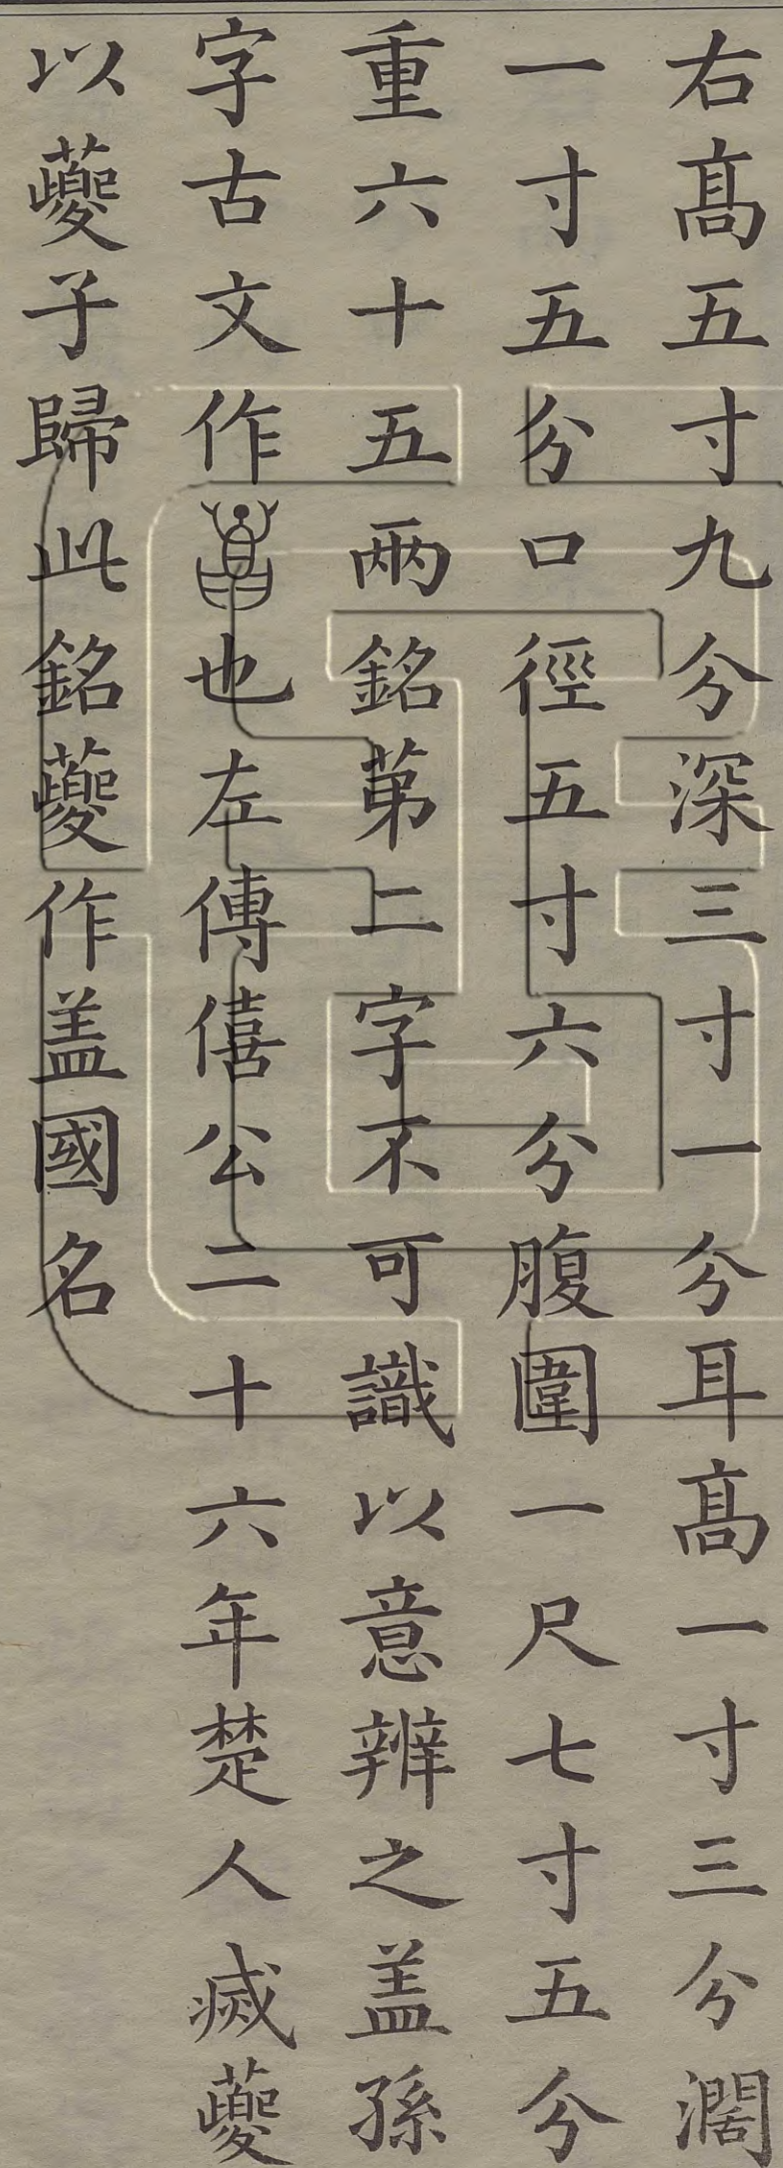 右髙五寸九分深三寸一分耳髙一寸三分濶
一寸五分口徑五寸六分腹圍一尺七寸五分
重六十五兩銘第二字不可識以意辨之盖孫
字古文作也左傳僖公二十六年楚人滅夔
以夔子歸此銘夔作盖國名